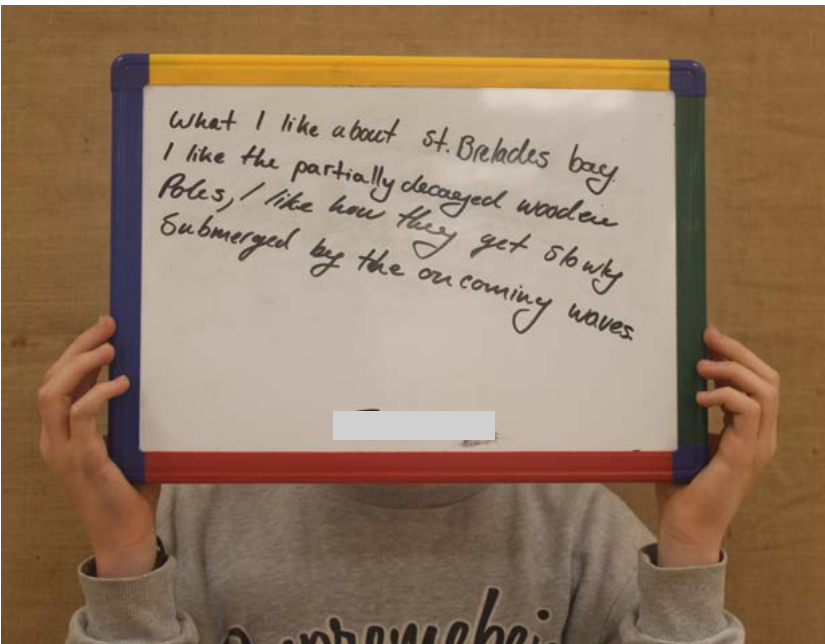 What I like about St. Brelades bay.
I like the partially decayed wooden
Poles, I like how they get slowly
Submerged by the oncoming waves.